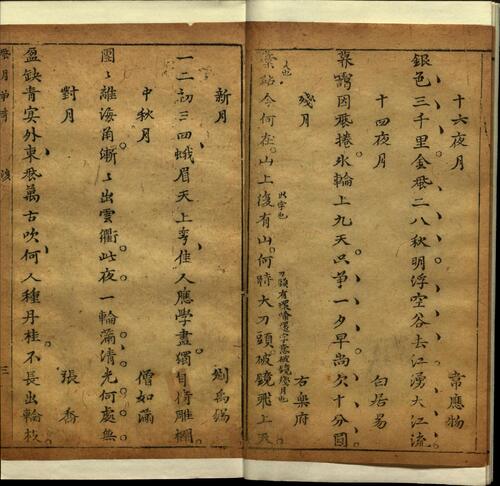 十六夜月
常應物
銀色三千里金凬二八秋明浮空谷去江湧大江流
十四夜月
白居易
因凬捲氷輪上九天只爭一夕早尚欠十分圓
殘月
右樂府
人也
藁砧今何在山上復有山何時大刀頭破鏡飛上天
出字也
刀頭有環喻還字意破鏡殘月也
新月
劉禹錫
一二初三四蛾眉天上弯佳人應學畫獨自倚雕欄
中秋月
僧如滿
團〻離海角漸〻出雲衢此夜一輪滿清光何處無
對月
張喬
盈缺青冥外東凬萬古吹何人種丹桂不長出輪枝
三